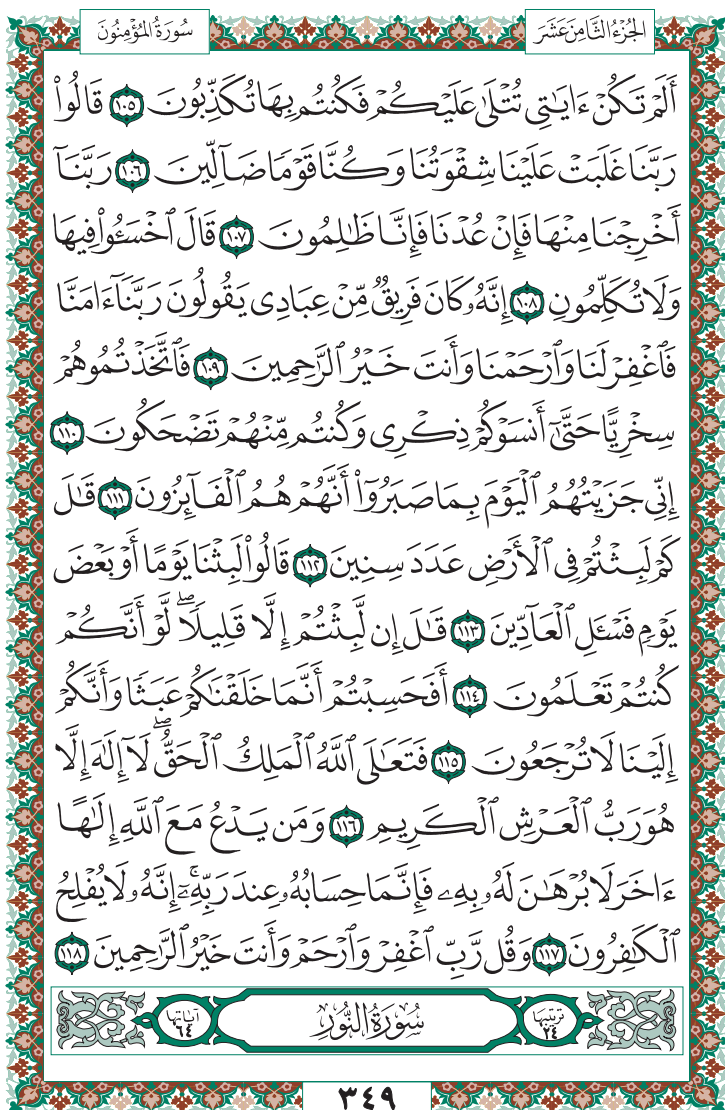 الجُزْءُ الثَّامِنَ عَشَرَ
سُورَةُ المُؤْمِنُونَ
أَلَمْ تَكُنْ ءَايَٰتِى تُتْلَىٰ عَلَيْكُمْ فَكُنتُم بِهَا تُكَذِّبُونَ ١٠٥ قَالُوا۟
رَبَّنَا غَلَبَتْ عَلَيْنَا شِقْوَتُنَا وَكُنَّا قَوْمًا ضَآلِّينَ ١٠٦ رَبَّنَآ
أَخْرِجْنَا مِنْهَا فَإِنْ عُدْنَا فَإِنَّا ظَٰلِمُونَ ١٠٧ قَالَ ٱخْسَـُٔوا۟ فِيهَا
وَلَا تُكَلِّمُونِ ١٠٨ إِنَّهُۥ كَانَ فَرِيقٌ مِّنْ عِبَادِى يَقُولُونَ رَبَّنَآ ءَامَنَّا
فَٱغْفِرْ لَنَا وَٱرْحَمْنَا وَأَنتَ خَيْرُ ٱلرَّٰحِمِينَ ١٠٩ فَٱتَّخَذْتُمُوهُمْ
سِخْرِيًّا حَتَّىٰٓ أَنسَوْكُمْ ذِكْرِى وَكُنتُم مِّنْهُمْ تَضْحَكُونَ ١١٠
إِنِّى جَزَيْتُهُمُ ٱلْيَوْمَ بِمَا صَبَرُوٓا۟ أَنَّهُمْ هُمُ ٱلْفَآئِزُونَ ١١١ قَٰلَ
كَمْ لَبِثْتُمْ فِى ٱلْأَرْضِ عَدَدَ سِنِينَ ١١٢ قَالُوا۟ لَبِثْنَا يَوْمًا أَوْ بَعْضَ
يَوْمٍ فَسْـَٔلِ ٱلْعَآدِّينَ ١١٣ قَٰلَ إِن لَّبِثْتُمْ إِلَّا قَلِيلًاۖ لَّوْ أَنَّكُمْ
كُنتُمْ تَعْلَمُونَ ١١٤ أَفَحَسِبْتُمْ أَنَّمَا خَلَقْنَٰكُمْ عَبَثًا وَأَنَّكُمْ
إِلَيْنَا لَا تُرْجَعُونَ ١١٥ فَتَعَٰلَى ٱللَّهُ ٱلْمَلِكُ ٱلْحَقُّۖ لَآ إِلَٰهَ إِلَّا
هُوَ رَبُّ ٱلْعَرْشِ ٱلْكَرِيمِ ١١٦ وَمَن يَدْعُ مَعَ ٱللَّهِ إِلَٰهًا
ءَاخَرَ لَا بُرْهَٰنَ لَهُۥ بِهِۦ فَإِنَّمَا حِسَابُهُۥ عِندَ رَبِّهِۦٓۚ إِنَّهُۥ لَا يُفْلِحُ
ٱلْكَٰفِرُونَ ١١٧ وَقُل رَّبِّ ٱغْفِرْ وَٱرْحَمْ وَأَنتَ خَيْرُ ٱلرَّٰحِمِينَ ١١٨
ترتيبها ٢٤
سُورَةُ النُّورِ
آياتها ٦٤
٣٤٩